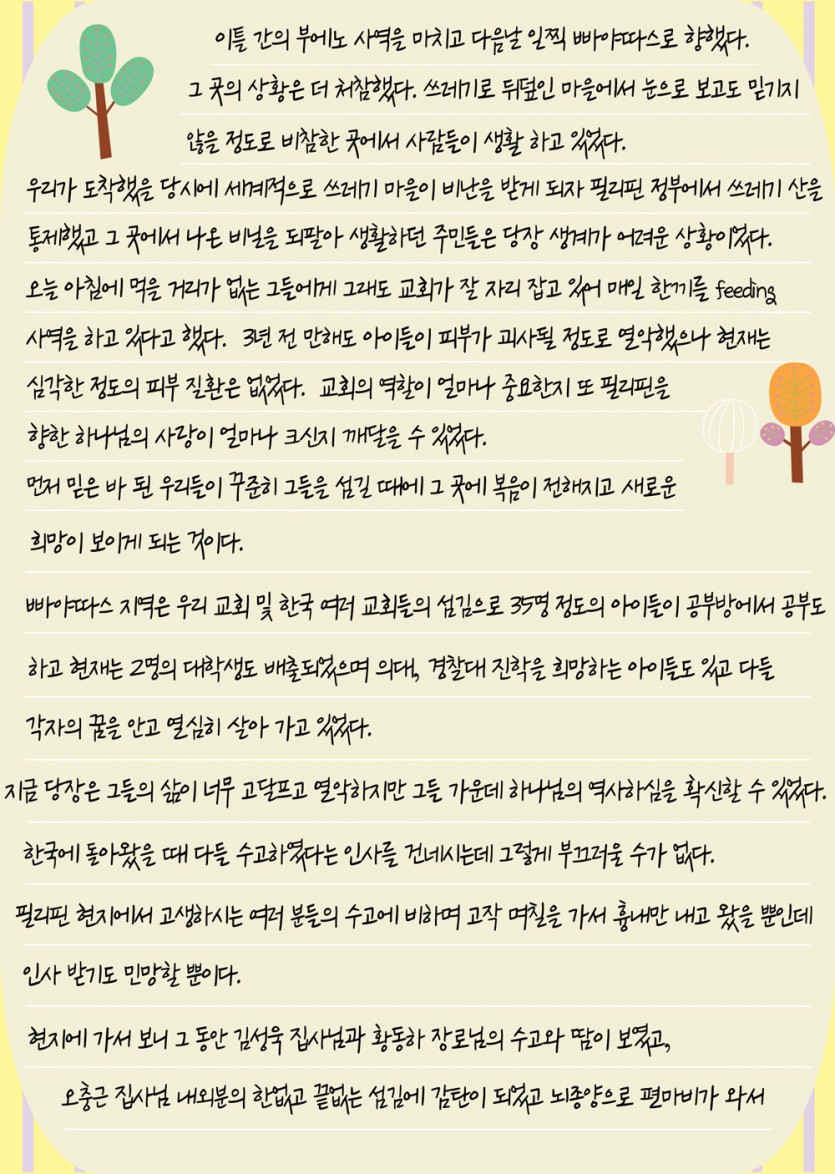 이틀 간의 부에노 사역을 마치고 다음날 일찍 빠야따스로 향했다.
그 곳의 상황은 더 처참했다. 쓰레기로 뒤덮인 마을에서 눈으로 보고도 믿기지
않을 정도로 비참한 곳에서 사람들이 생활 하고 있었다.
우리가 도착했을 당시에 세계적으로 쓰레기 마을이 비난을 받게 되자 필리핀 정부에서 쓰레기 산을
통제했고 그 곳에서 나온 비닐을 되팔아 생활하던 주민들은 당장 생계가 어려운 상황이었다.
오늘 아침에 먹을 거리가 없는 그들에게 그래도 교회가 잘 자리 잡고 있어 매일 한끼를 feeding
사역을 하고 있다고 했다. 3년 전 만해도 아이들이 피부가 괴사될 정도로 열악했으나 현재는
심각한 정도의 피부 질환은 없었다. 교회의 역할이 얼마나 중요한지 또 필리핀을
향한 하나님의 사랑이 얼마나 크신지 깨달을 수 있었다.
먼저 믿은 바 된 우리들이 꾸준히 그들을 섬길 때에 그 곳에 복음이 전해지고 새로운
희망이 보이게 되는 것이다.
빠야따스 지역은 우리 교회 및 한국 여러 교회들의 섬김으로 35명 정도의 아이들이 공부방에서 공부도
하고 현재는 2명의 대학생도 배출되었으며 의대, 경찰대 진학을 희망하는 아이들도 있고 다들
각자의 꿈을 안고 열심히 살아 가고 있었다.
지금 당장은 그들의 삶이 너무 고달프고 열악하지만 그들 가운데 하나님의 역사하심을 확신할 수 있었다.
한국에 돌아왔을 때 다들 수고하였다는 인사를 건네시는데 그렇게 부끄러울 수가 없다.
필리핀 현지에서 고생하시는 여러 분들의 수고에 비하며 고작 며칠을 가서 흉내만 내고 왔을 뿐인데
인사 받기도 민망할 뿐이다.
현지에 가서 보니 그 동안 김성욱 집사님과 황동하 장로님의 수고와 땀이 보였고,
오충근 집사님 내외분의 한없고 끝없는 섬김에 감탄이 되었고 뇌종양으로 편마비가 와서